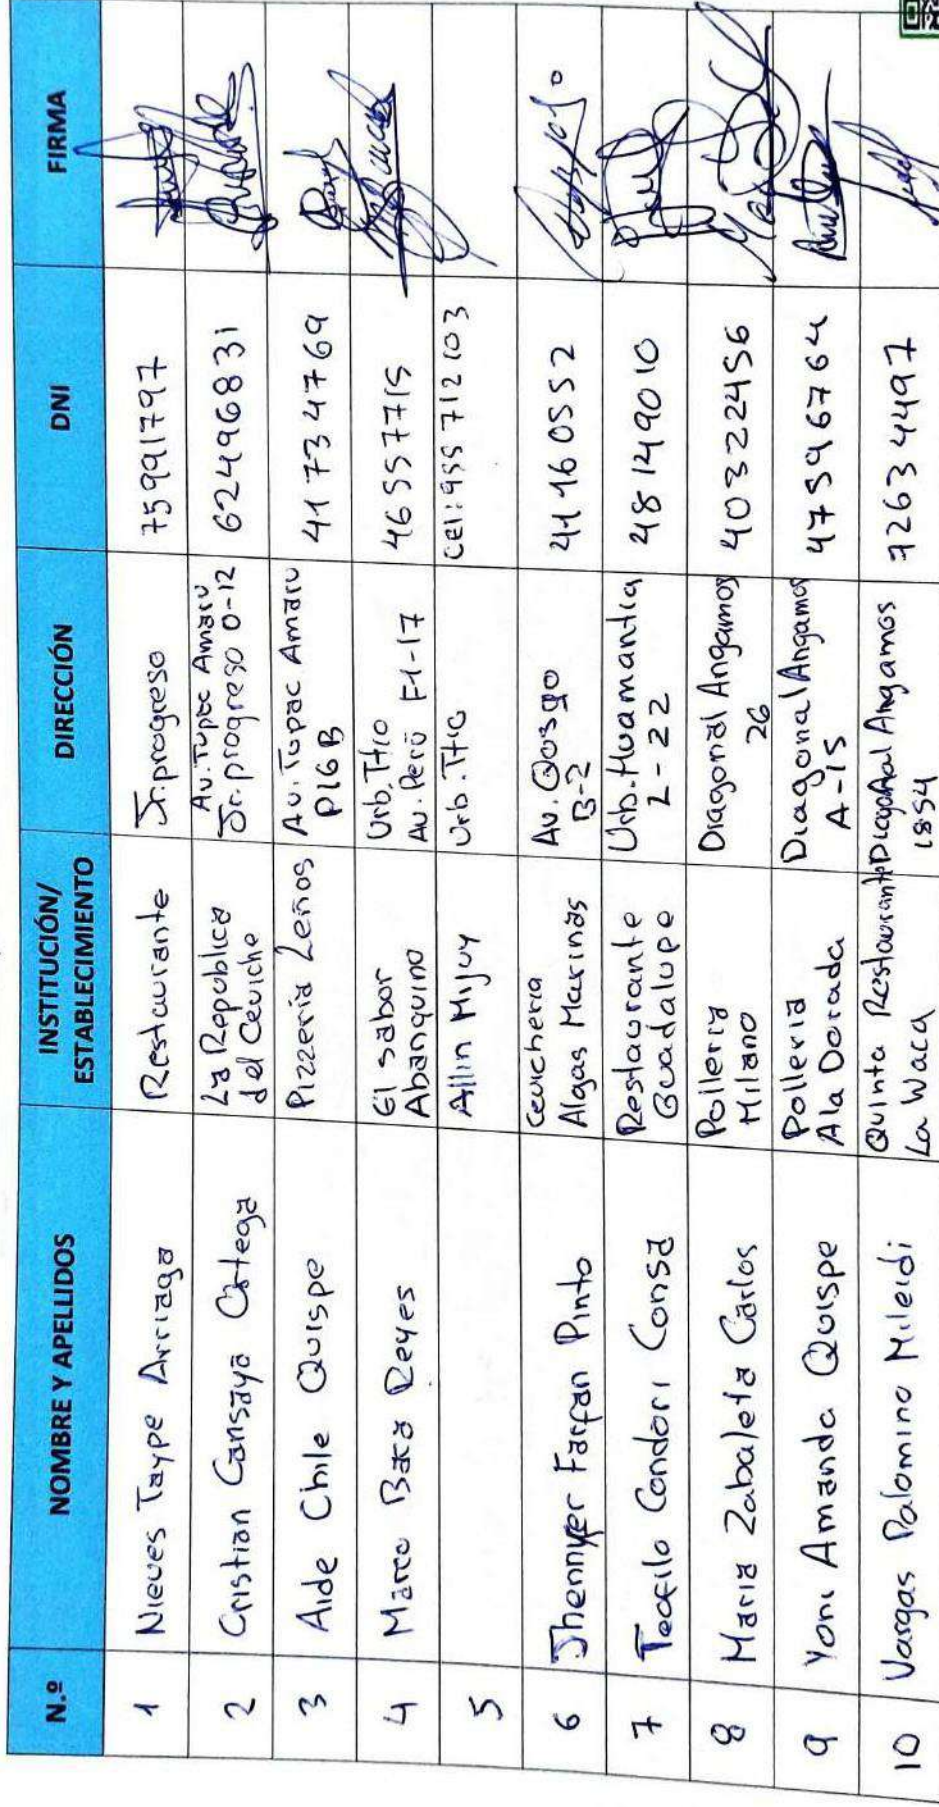 N.º NOMBRE Y APELLIDOS INSTITUCIÓN/ ESTABLECIMIENTO DIRECCIÓN DNI FIRMA
1 Nieves Taype Arriaga Restaurante Jr. progreso 75991797
2 Cristian Cansaya Ortega La Republica del Ceviche Av. Tupac Amaru Jr. progreso O-12 62496831
3 Aide Chile Quispe Pizzeria Leños Av. Tupac Amaru P16 B 41734769
4 Marco Baca Reyes El sabor Abanquino Urb. Ttio Av. Perú F1-17 46557715
5 Allin Mijuy Urb. Ttio Cel: 955 712 103
6 Jhennyfer Farfan Pinto Cevicheria Algas Marinas Av. Qosqo B-2 41160552
7 Teofilo Condori Consa Restaurante Guadalupe Urb. Huamantia L-22 48149010
8 Maria Zabaleta Carlos Polleria Milano Diagonal Angamos 26 40322456
9 Yoni Amanda Quispe Polleria Ala Dorada Diagonal Angamos A-15 47596764
10 Vargas Palomino Mileidi Quinta Restaurante La Waca Diagonal Angamos 1854 72634497